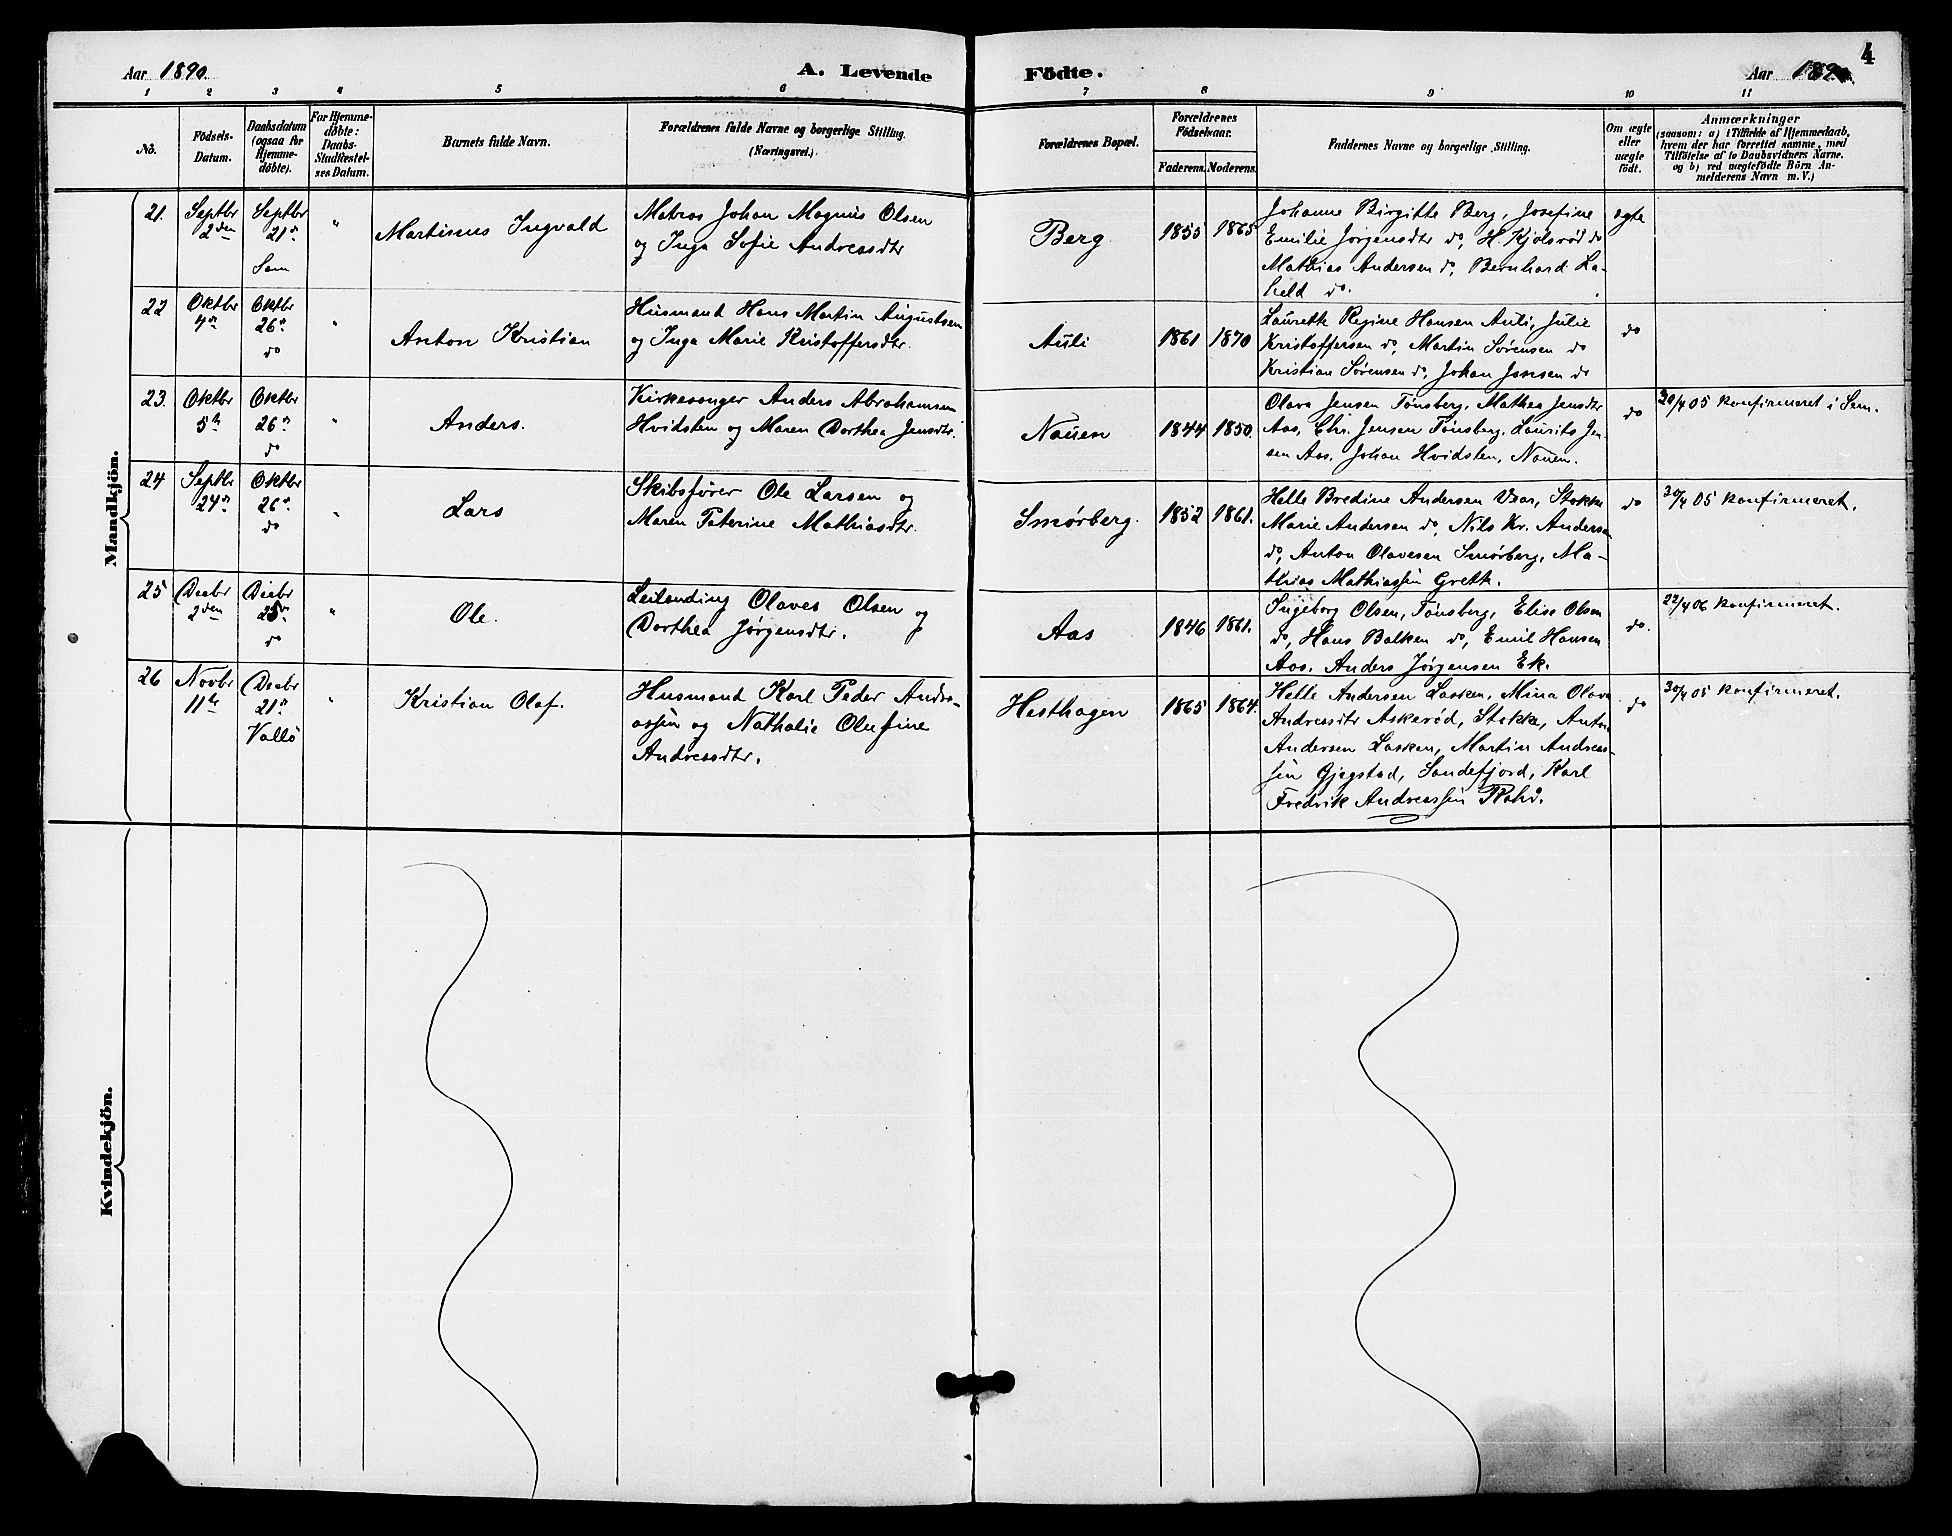 4
Aar 1890.
A. Levende Födte.
Aar 189
1 2 3 4 5 6 7 8 9 10 11
No.
Födsels-
Datum.
Daabsdatum
(ogsaa for
Hjemme-
döbte).
For Hjemme-
döbte:
Daabs-
Stadfæstel-
ses Datum.
Barnets fulde Navn.
Forældrenes fulde Navne og borgerlige Stilling.
(Næringsvei.)
Forældrenes Bopæl.
Forældrenes
Födselsaar.
Faderens. Moderens.
Faddernes Navne og borgerlige Stilling.
Om ægte
eller
uægte
födt.
Anmærkninger
(saasom: a) i Tilfælde af Hjemmedaab,
hvem der har forrettet samme, med
Tilföielse af to Daabsvidners Navne.
og b) ved uægtefödte Börn An-
melderens Navn m. V.)
Mandkjön.
21.
Septbr
2den
Septbr
21de
Sem
"
Martinus Ingvald
Matros Johan Magnus Olsen
og Inga Sofie Andreasdtr
Berg
1855
1865
Johanne Birgitte Berg, Josefine
Emilie Jørgensdtr do, H. Kjølsrød do
Mathias Andersen do, Bernhard La-
held do.
ægte
22
Oktbr
4de
Oktbr
26de
do
"
Anton Kristian
Husmand Hans Martin Augustsen
og Inga Marie Kristoffersdtr.
Auli
1861
1870
Laurette Regine Hansen Auli, Julie
Kristoffersen do, Martin Sørensen do
Kristian Sørensen do, Johan Jensen do
do
23.
Oktbr
5te
Oktbr
26de
do
"
Anders.
Kirkesanger Anders Abrahamsen
Hvidsten og Maren Dorthea Jensdtr.
Nauen
1844
1850.
Olava Jensen Tønsberg, Mathea Jensdtr
Aas, Chr. Jensen Tønsberg, Laurits Jen-
sen Aas, Johan Hvidsten, Nauen.
do
30/4 05 konfirmeret i Sem.
24
Septbr
24de
Oktbr
26de
do
"
Lars
Skibsfører Ole Larsen og
Maren Katerine Mathiasdtr.
Smørberg.
1852
1861.
Helle Bredine Andersen Vear, Stokke
Marie Andersen do, Nils Kr. Andersen
do, Anton Olavesen Smørberg, Ma-
thias Mathiassen Grette.
do
30/4 05 konfirmeret.
25
Decbr
2den
Decbr
25de
do
"
Ole.
Leilending Olaves Olsen og
Dorthea Jørgensdtr.
Aas
1846
1861.
Ingeborg Olsen, Tønsberg, Elise Olsen
do, Hans Bakken do, Emil Hansen
Aas, Anders Jørgensen Ek.
do.
22/4 06 konfirmeret.
26
Novbr
11te
Decbr
21de
Vallö
"
Kristian Olaf.
Husmand Karl Peder Andre-
assen og Nathalie Olufine
Andreasdtr.
Hesthagen
1865
1864.
Helle Andersen Lasken, Mina Olava
Andreasdtr Askerød, Stokke, Anton
Andersen Lasken, Martin Andreas-
sen Gjegstad, Sandefjord, Karl
Fredrik Andreassen
do
30/4 05 konfirmeret.
Kvindekjön.